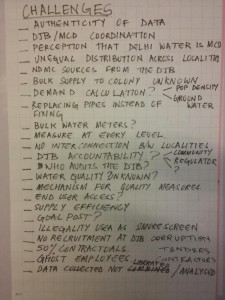 CHALLENGES
— AUTHENTICITY OF DATA
— DJB/MCD COORDINATION
— PERCEPTION THAT DELHI WATER IS MCD
— UNEQUAL DISTRIBUTION ACROSS LOCALITIES
— NDMC SOURCES FROM THE DJB
— BULK SUPPLY TO COLONY UNKNOWN
— DEMAND CALCULATION? < POP DENSITY
GROUND WATER
— REPLACING PIPES INSTEAD OF
FIXING
— BULK WATER METERS?
— MEASURE AT EVERY LEVEL
— NO INTERCONNECTION B/W LOCALITIES
— DJB ACCOUNTABILITY? < COMMUNITY
REGULATOR
?
— WHO AUDITS THE DJB?
— WATER QUALITY UNKNOWN?
— MECHANISM FOR QUALITY MEASURES
— END USER ACCESS?
— SUPPLY EFFICIENCY
— GOAL POST?
— ILLEGALITY USED AS SMOKESCREEN
— NO RECRUITMENT AT DJB CORRUPTION
— 50% CONTRACTUAL TENDERS
— GHOST EMPLOYEES CONTRACTORS
— DATA COLLECTED NOT /ANALYSED